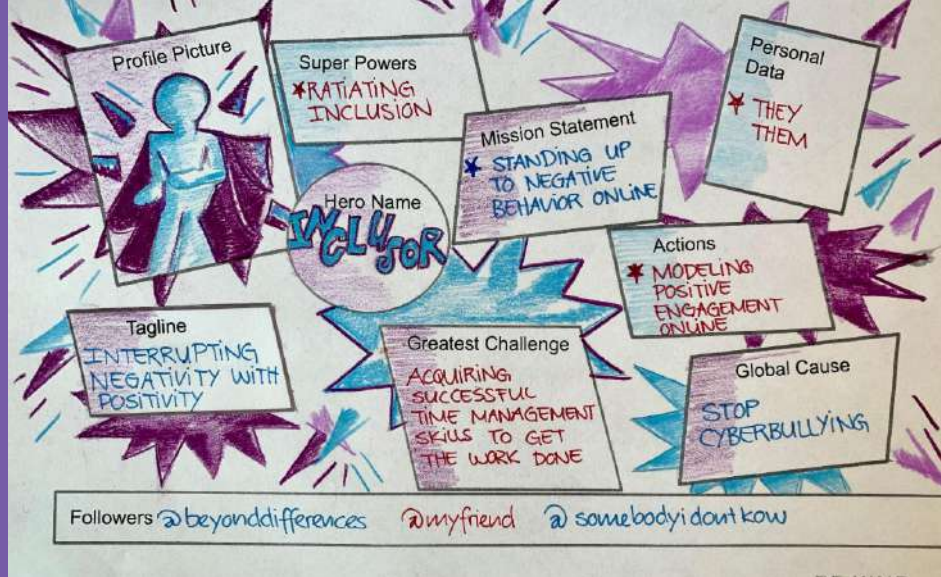 Profile Picture
Super Powers
RATIATING
INCLUSION
Mission Statement
STANDING UP
TO NEGATIVE
BEHAVIOR ONLINE
Personal
Data
THEY
THEM
Hero Name
INCLUSOR
Actions
MODELING
POSITIVE
ENGAGEMENT
ONLINE
Tagline
INTERRUPTING
NEGATIVITY WITH
POSITIVITY
Greatest Challenge
ACQUIRING
SUCCESSFUL
TIME MANAGEMENT
SKILLS TO GET
THE WORK DONE
Global Cause
STOP
CYBERBULLYING
Followers @beyonddifferences @myfriend @somebodyidontkow